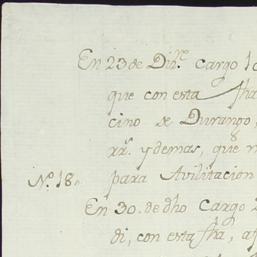 En 23 de Dib.ᵉ Cargo 1
que con esta fha
cino de Durango,
xx.ˢ y demas, que
para Avilitacion
N.º 18.
En 30. de dho Cargo
di, con esta fha, a